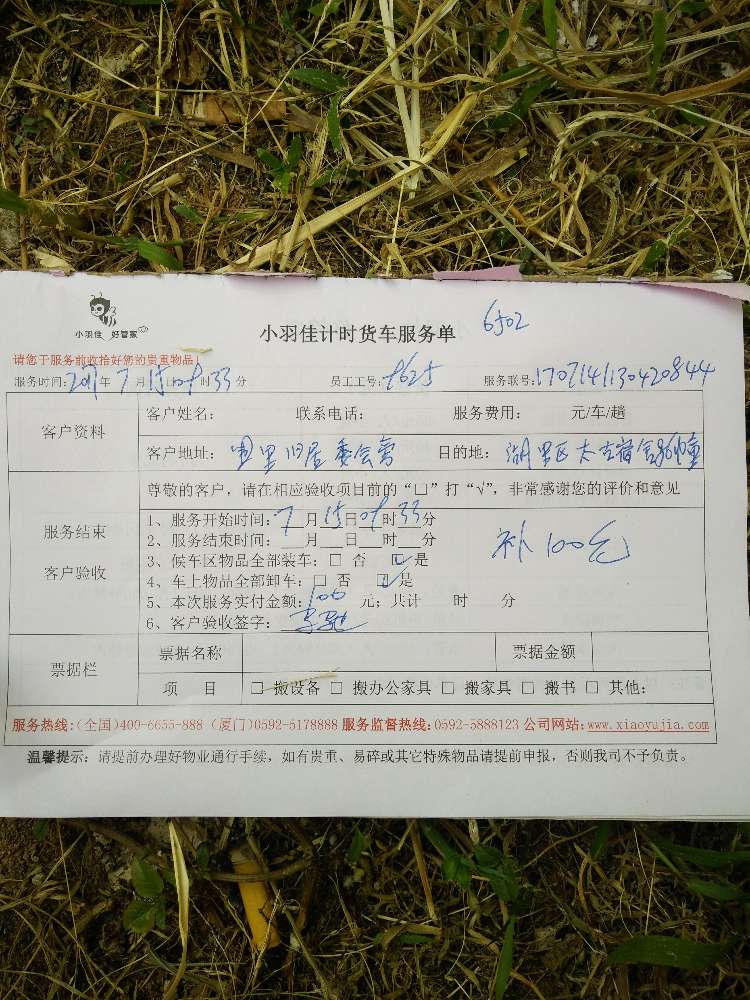 小羽佳 好管家
小羽佳计时货车服务单 6502
请您于服务前收拾好您的贵重物品!
服务时间:2017年7月15日09时33分 员工工号: 8625 服务联号:1707141130420844
客户资料
客户姓名: 联系电话: 服务费用: 元/车/趟
客户地址: 里旧居委会旁 目的地: 湖里区太古宿舍
尊敬的客户,请在相应验收项目前的“□”打“√”,非常感谢您的评价和意见
服务结束
客户验收
1、服务开始时间:7月15日09时33分
2、服务结束时间: 月 日 时 分
3、候车区物品全部装车:□ 否 ☑是
4、车上物品全部卸车:□ 否 ☑是
补100元
5、本次服务实付金额:100 元;共计 时 分
6、客户验收签字:
票据栏
票据名称 票据金额
项 目 □ 搬设备 □ 搬办公家具 □ 搬家具 □ 搬书 □ 其他:
服务热线:(全国)400-6655-888 (厦门)0592-5178888 服务监督热线:0592-5888123 公司网站:www.xiaoyujia.com
温馨提示:请提前办理好物业通行手续,如有贵重、易碎或其它特殊物品请提前申报,否则我司不予负责。